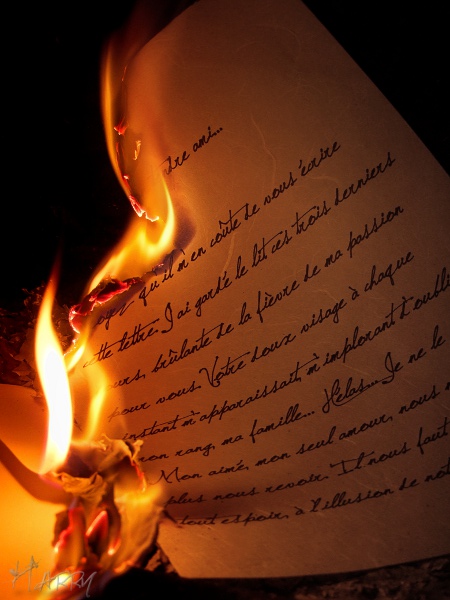 dre ami...
oyez qu'il m'en coûte de vous écrire
tte lettre. J'ai gardé le lit ces trois derniers
urs, brûlante de la fièvre de ma passion
pour vous. Votre doux visage à chaque
instant m'apparaissait, m'implorant d'oubli
mon rang, ma famille... Helas... Je ne le
Mon aimé, mon seul amour, nous n
plus nous revoir. Il nous faut
tout espoir, à l'illusion de not
HARRY